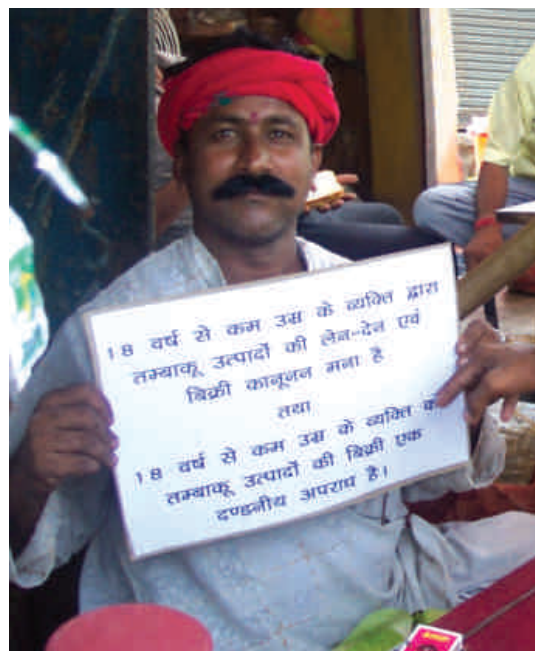 18 वर्ष से कम उम्र के व्यक्ति द्वारा
तम्बाकू उत्पादों की लेन-देन एवं
बिक्री कानूनन मना है
तथा
18 वर्ष से कम उम्र के व्यक्ति को
तम्बाकू उत्पादों की बिक्री एक
दण्डनीय अपराध है।